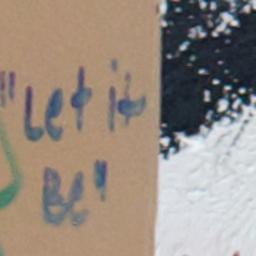 "Let it
Be"